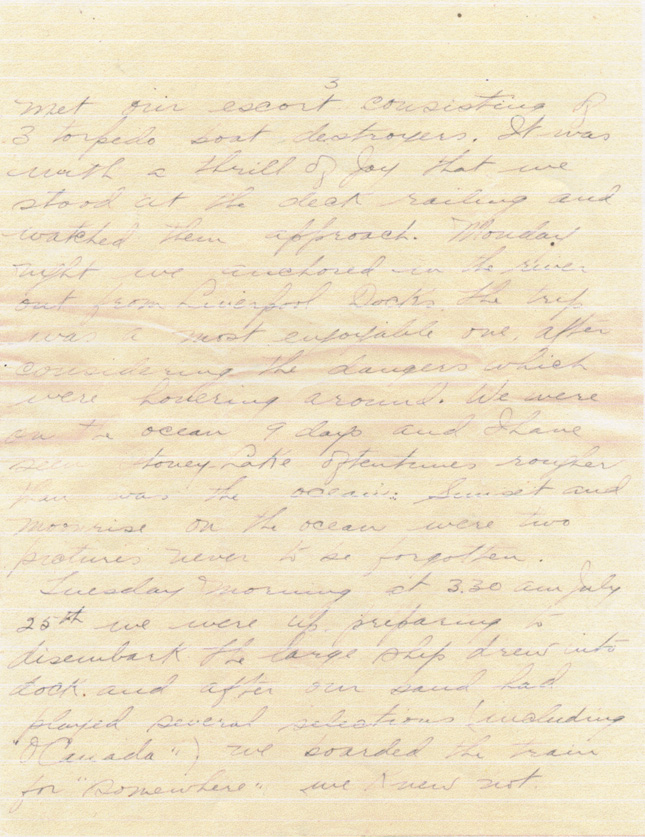 3
met our escort consisting of
3 torpedo boat destroyers. It was
with a thrill of joy that we
stood at the deck railing and
watched them approach. Monday
night we anchored in the river
out from Liverpool Docks. The trip
was a most enjoyable one, after
considering the dangers which
were hovering around. We were
on the ocean 9 days and I have
seen Stoney Lake oftentimes rougher
than was the ocean. Sunset and
moonrise on the ocean were two
pictures never to be forgotten.
Tuesday morning at 3.30 am July
25th we were up preparing to
disembark the large ship drew into
dock. and after our band had
played several selections (including
"O Canada") we boarded the train
for "somewhere" we knew not.